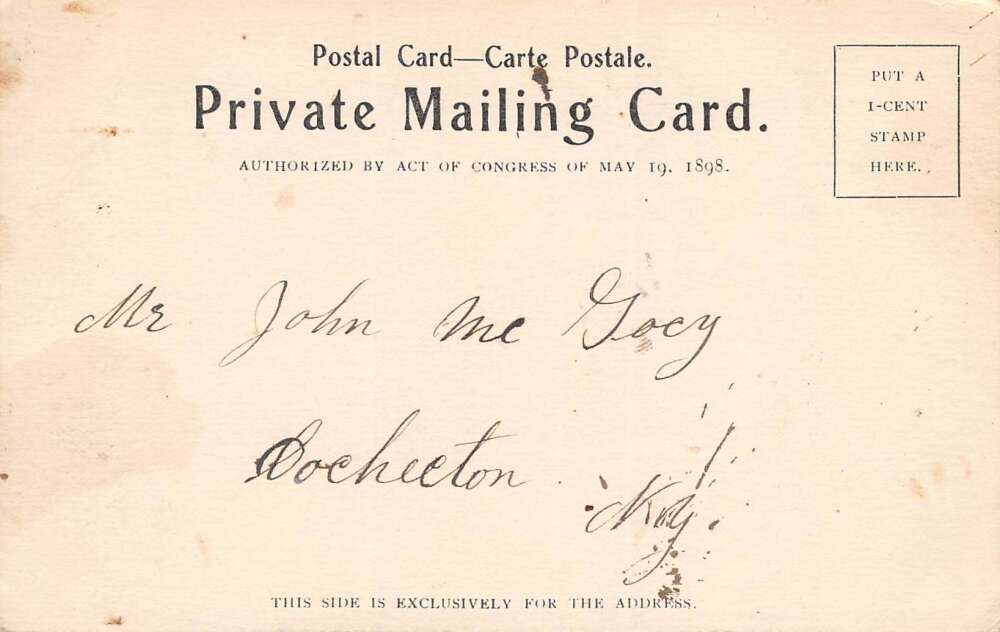 Postal Card—Carte Postale.
Private Mailing Card.
AUTHORIZED BY ACT OF CONGRESS OF MAY 19, 1898.
PUT A
1-CENT
STAMP
HERE.
Mr John Mc Goey
Cochecton
N.Y.
THIS SIDE IS EXCLUSIVELY FOR THE ADDRESS.